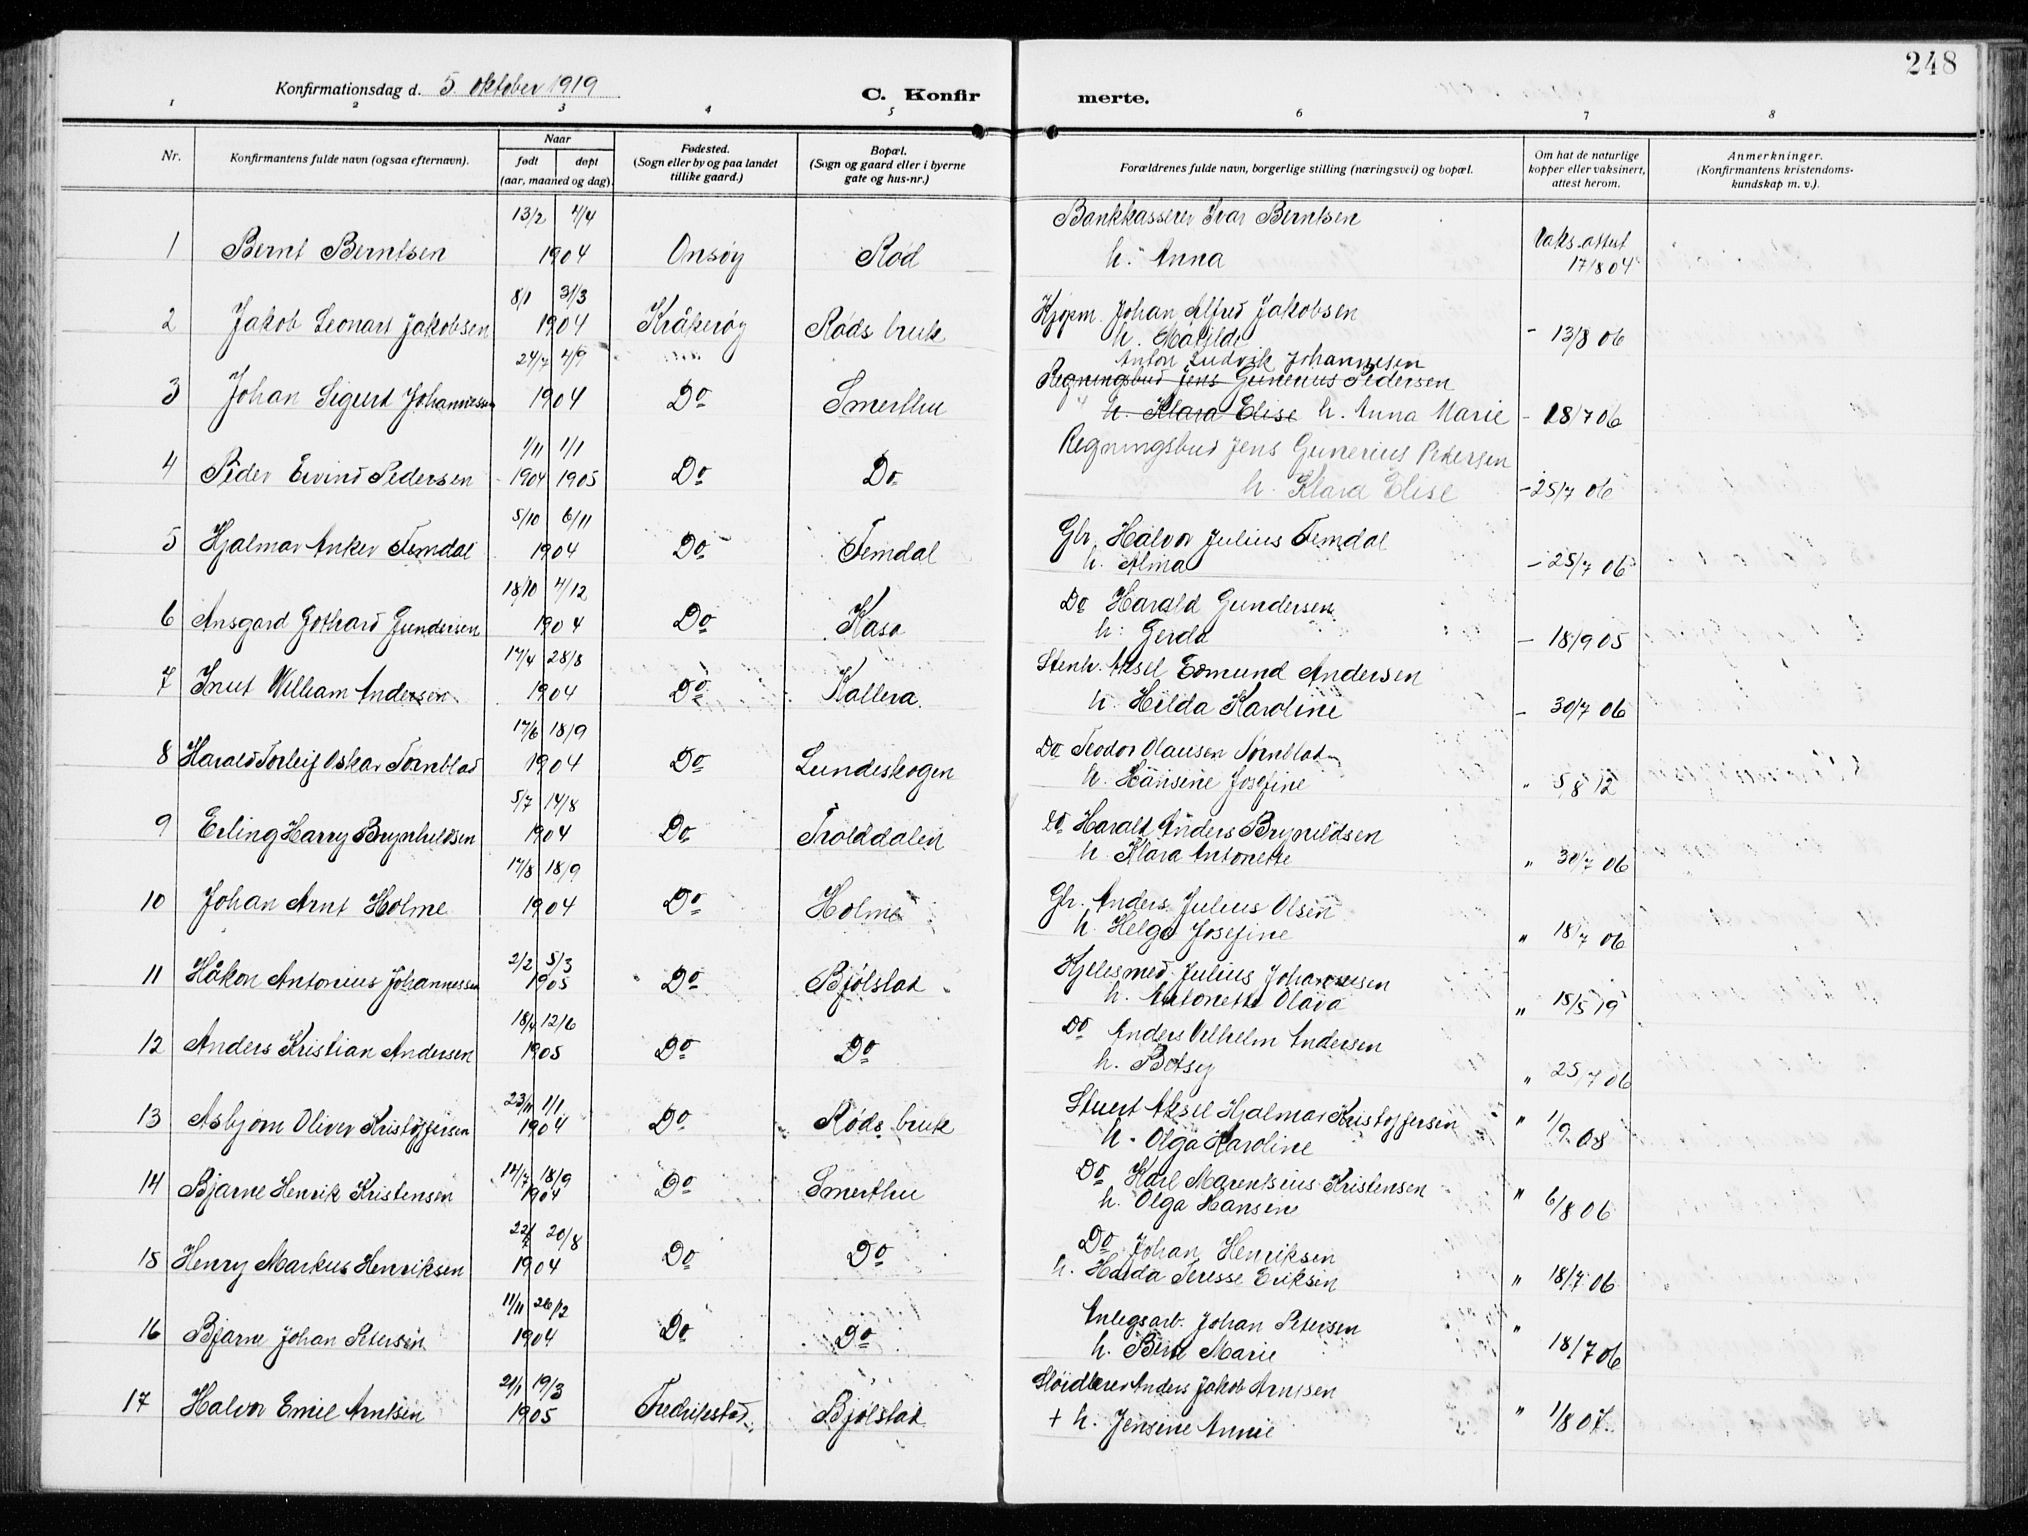 248
Konfirmationsdag d. 5 oktober 1919
C. Konfirmerte.
1 2 3 4 5 6 7 8
Nr.
Konfirmantens fulde navn (ogsaa efternavn).
Naar
født døpt
(aar, maaned og dag).
Fødested.
(Sogn eller by og paa landet
tillike gaard.)
Bopæl.
(Sogn og gaard eller i byerne
gate og hus-nr.)
Forældrenes fulde navn, borgerlige stilling (næringsvei) og bopæl.
Om hat de naturlige
kopper eller vaksinert,
attest herom.
Anmerkninger.
(Konfirmantens kristendoms-
kundskap m. v.).
13/2 4/4 Bankkasserer Ivar Berntsen
1 Bernt Berntsen 1904 Onsøy Rød h. Anna Vaks. attest 17/8 04
8/1 31/3
2 Jakob Leonart Jakobsen 1904 Kråkerøy Røds bruk Kjøpm. Johan Alfred Jakobsen
h. Matilde - 13/8 06
24/7 4/9 Anton Ludvik Johannesen
Regningsbud Jens Gunerius Pedersen
3 Johan Sigurd Johannesen 1904 Do Smerthu h. Klara Elise h. Anna Marie - 18/7 06
1/11 1/1 Regningsbud Jens Gunerius Petersen
4 Peder Eivind Pedersen 1904 1905 Do Do h. Klara Elise - 25/7 06
5/10 6/11 Gbr. Halvor Julius Femdal
5 Hjalmar Anker Femdal 1904 Do Femdal h. Alma - 25/7 06
18/10 4/12 Do Harald Gundersen
6 Ansgard Gothard Gundersen 1904 Do Kasa h. Gerda - 18/9 05
17/4 28/8 Stenh. Aksel Edmund Andersen
7 Knut William Andersen 1904 Do Kallera h. Hilda Karoline - 30/7 06
17/6 18/9 Do Teodor Olausen Tørnblad
8 Harald Torleif Oskar Tørnblad 1904 Do Lundeskogen h. Hansine Josefine " 5/8 12
5/7 14/8 Do Harald Anders Brynildsen
9 Erling Harry Brynhildsen 1904 Do Trolddalen h. Klara Antonette " 30/7 06
17/8 18/9
10 Johan Arnt Holme 1904 Do Holme Gbr. Anders Julius Olsen
h. Helga Josefine " 18/7 06
2/2 5/3 Kjelesmed Julius Johannesen
11 Håkon Antonius Johannessen 1905 Do Bjølstad h. Antonette Olava " 15/5 19
18/4 12/6 Do Anders Vilhelm Andersen
12 Anders Kristian Andersen 1905 Do Do h. Betsey " 25/7 06
23/11 1/1 Stuert Aksel Hjalmar Kristoffersen
13 Asbjørn Oliver Kristoffersen 1904 Do Røds bruk h. Olga Karoline " 1/9 08
14/7 18/9 Do Karl Marentsius Kristensen
14 Bjarne Henrik Kristensen 1904 Do Smerthu h. Olga Hansine " 6/8 06
22/7 20/8 Do Johan Henriksen
15 Henry Markus Henriksen 1904 Do Do h. Hulda Teresse Eriksen " 18/7 06
11/11 26/12 Anlegsarb. Johan Petersen
16 Bjarne Johan Petersen 1904 Do Do h. Marie " 18/7 06
21/1 19/3 Sløidlærer Anders Jakob Arntsen
17 Halvor Emil Arntsen 1905 Fredrikstad Bjølstad + h. Jensine Annie " 1/8 07